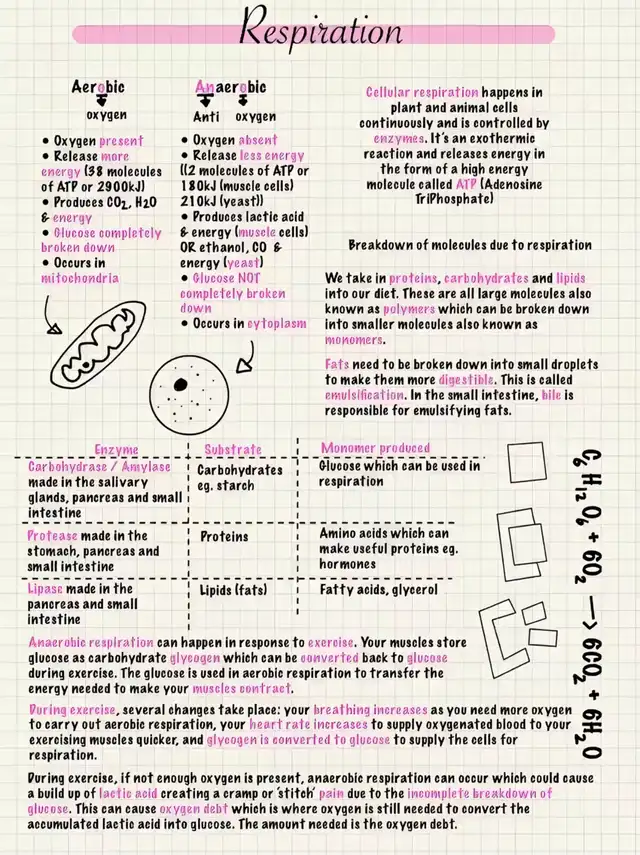 Respiration
Aerobic
oxygen
• Oxygen present
• Release more
energy (38 molecules
of ATP or 2900kJ)
• Produces CO₂, H₂O
& energy
• Glucose completely
broken down
• Occurs in
mitochondria
Anaerobic
Anti oxygen
• Oxygen absent
• Release less energy
((2 molecules of ATP or
180kJ (muscle cells)
210kJ (yeast))
• Produces lactic acid
& energy (muscle cells)
OR ethanol, CO &
energy (yeast)
• Glucose NOT
completely broken
down
• Occurs in cytoplasm
Cellular respiration happens in
plant and animal cells
continuously and is controlled by
enzymes. It's an exothermic
reaction and releases energy in
the form of a high energy
molecule called ATP (Adenosine
TriPhosphate)
Breakdown of molecules due to respiration
We take in proteins, carbohydrates and lipids
into our diet. These are all large molecules also
known as polymers which can be broken down
into smaller molecules also known as
monomers.
Fats need to be broken down into small droplets
to make them more digestible. This is called
emulsification. In the small intestine, bile is
responsible for emulsifying fats.
Enzyme Substrate Monomer produced
Carbohydrase / Amylase
made in the salivary
glands, pancreas and small
intestine
Carbohydrates
eg. starch
Glucose which can be used in
respiration
Protease made in the
stomach, pancreas and
small intestine
Proteins
Amino acids which can
make useful proteins eg.
hormones
Lipase made in the
pancreas and small
intestine
Lipids (fats)
Fatty acids, glycerol
C₆H₁₂O₆ + 6O₂ → 6CO₂ + 6H₂O
Anaerobic respiration can happen in response to exercise. Your muscles store
glucose as carbohydrate glycogen which can be converted back to glucose
during exercise. The glucose is used in aerobic respiration to transfer the
energy needed to make your muscles contract.
During exercise, several changes take place: your breathing increases as you need more oxygen
to carry out aerobic respiration, your heart rate increases to supply oxygenated blood to your
exercising muscles quicker, and glycogen is converted to glucose to supply the cells for
respiration.
During exercise, if not enough oxygen is present, anaerobic respiration can occur which could cause
a build up of lactic acid creating a cramp or 'stitch' pain due to the incomplete breakdown of
glucose. This can cause oxygen debt which is where oxygen is still needed to convert the
accumulated lactic acid into glucose. The amount needed is the oxygen debt.